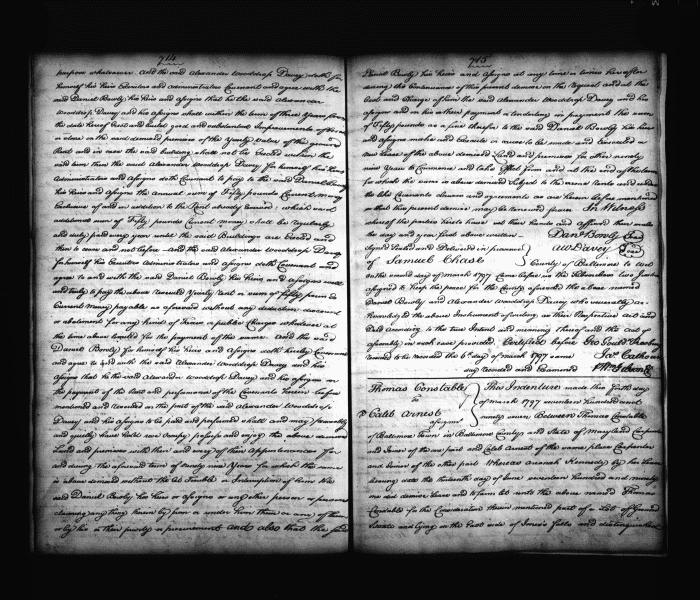 714
purpose whatsoever. And the said Alexander Woodrop Davey doth for
himself his Heirs Executors and Administrators Covenant and agree with the
said Daniel Bowly his Heirs and Assigns that he the said Alexander
Woodrop Davey and his Assigns shall within the term of three Years from
the date hereof and build good and substantial Improvements
or class on the said demised premises of the Yearly value of the ground
Rent and in case the said buildings shall not be Erected within the
said term then the said Alexander Woodrop Davey for himself his Heirs
Administrators and Assigns doth Covenant to pay to the said Daniel Bowly
his Heirs and Assigns the annual sum of Fifty pounds Current Money
Exclusive of and in addition to the Rent already reserved which said
additional sum of Fifty pounds Current Money shall be regularly
and duly paid every year until the said Buildings are Erected and
then to cease and not before And the said Alexander Woodrop Davey
for himself his Executors Administrators and Assigns doth Covenant and
agree to and with the said Daniel Bowly his Heirs and Assigns well
and truly to pay the above reserved Yearly Rent or sum of Fifty pounds
Current Money payable as aforesaid without any deduction
or abatement for any kinds of Taxes or public Charges whatever at
the time above limited for the payment of the same. And the said
Daniel Bowly for himself his Heirs and Assigns doth hereby Covenant
and agree to and with the said Alexander Woodrop Davey and his
Assigns that he the said Alexander Woodrop Davey and his Assigns on
the payment of the Rent and performance of the Covenants herein before
mentioned and reserved on the part of the said Alexander Woodrop
Davey and his Assigns to be paid and performed shall and may peaceably
and quietly have hold use occupy possess and enjoy the above demised
Land and premises with their and every of their Appurtenances for
and during the aforesaid term of ninety nine Years for which the same
is above demised without the Let Trouble or Interruption of him the
said Daniel Bowly his Heirs or Assigns or any other person or persons
claiming any thing herein by from or under him them or any of them
or by his or their privity or procurement and also that the said
715
Daniel Bowly his heirs and Assigns at any time or times hereafter
during the Continuance of this present demise on the request and at the
Cost and Charge of him the said Alexander Woodrop Davey and his
Assigns and on his or their payment or tendering in payment the sum
of Fifty pounds as a fine therefor to the said Daniel Bowly his heirs
and Assigns make and Execute or cause to be made and Executed a
new lease of the above demised Land and premises for other ninety
nine Years to Commence and take Effect from and at the end of the term
for which the same is above demised Subject to the same rents and under
the like Covenants clauses and agreements as are herein before mentioned
so that this present demise may be renewed forever In Witness
whereof the parties hereto set their hands and affixed their seals
the day and year first above written Danl Bowly Seal
Signed Sealed and Delivered in presence AW Davey Seal
of Samuel Chase County of Baltimore to wit
on the second day of March 1797 Came before us the Subscribers two Justices
Assigned to keep the peace for the County aforesaid the above named
Daniel Bowly and Alexander Woodrop Davey who severally ac-
knowledged the above Instrument of writing as their Respective Act and
Deed According to the true Intent and meaning thereof and the Act of
Assembly in such case provided. Certified before Geo Gould Presbury
Received to be recorded the 6th day of March 1797 same
day recorded and Examined Wm Gibson
Thomas Constable This Indenture made this
to of March 1797 seventeen hundred and
Caleb Arnest ninety seven Between Thomas Constable
assigns
of Baltimore Town in Baltimore County and State of Maryland Carpenter
and Joiner of the one part and Caleb Arnest of the same place Carpenter
and Joiner of the other part Whereas Kennedy by her Deed
bearing date the thirteenth day of June seventeen hundred and ninety
did demise Lease and to farm let unto the above named Thomas
Constable for the Consideration therein mentioned part of a Lot of Ground
Situate and lying on the East side of Jones's falls and distinguished